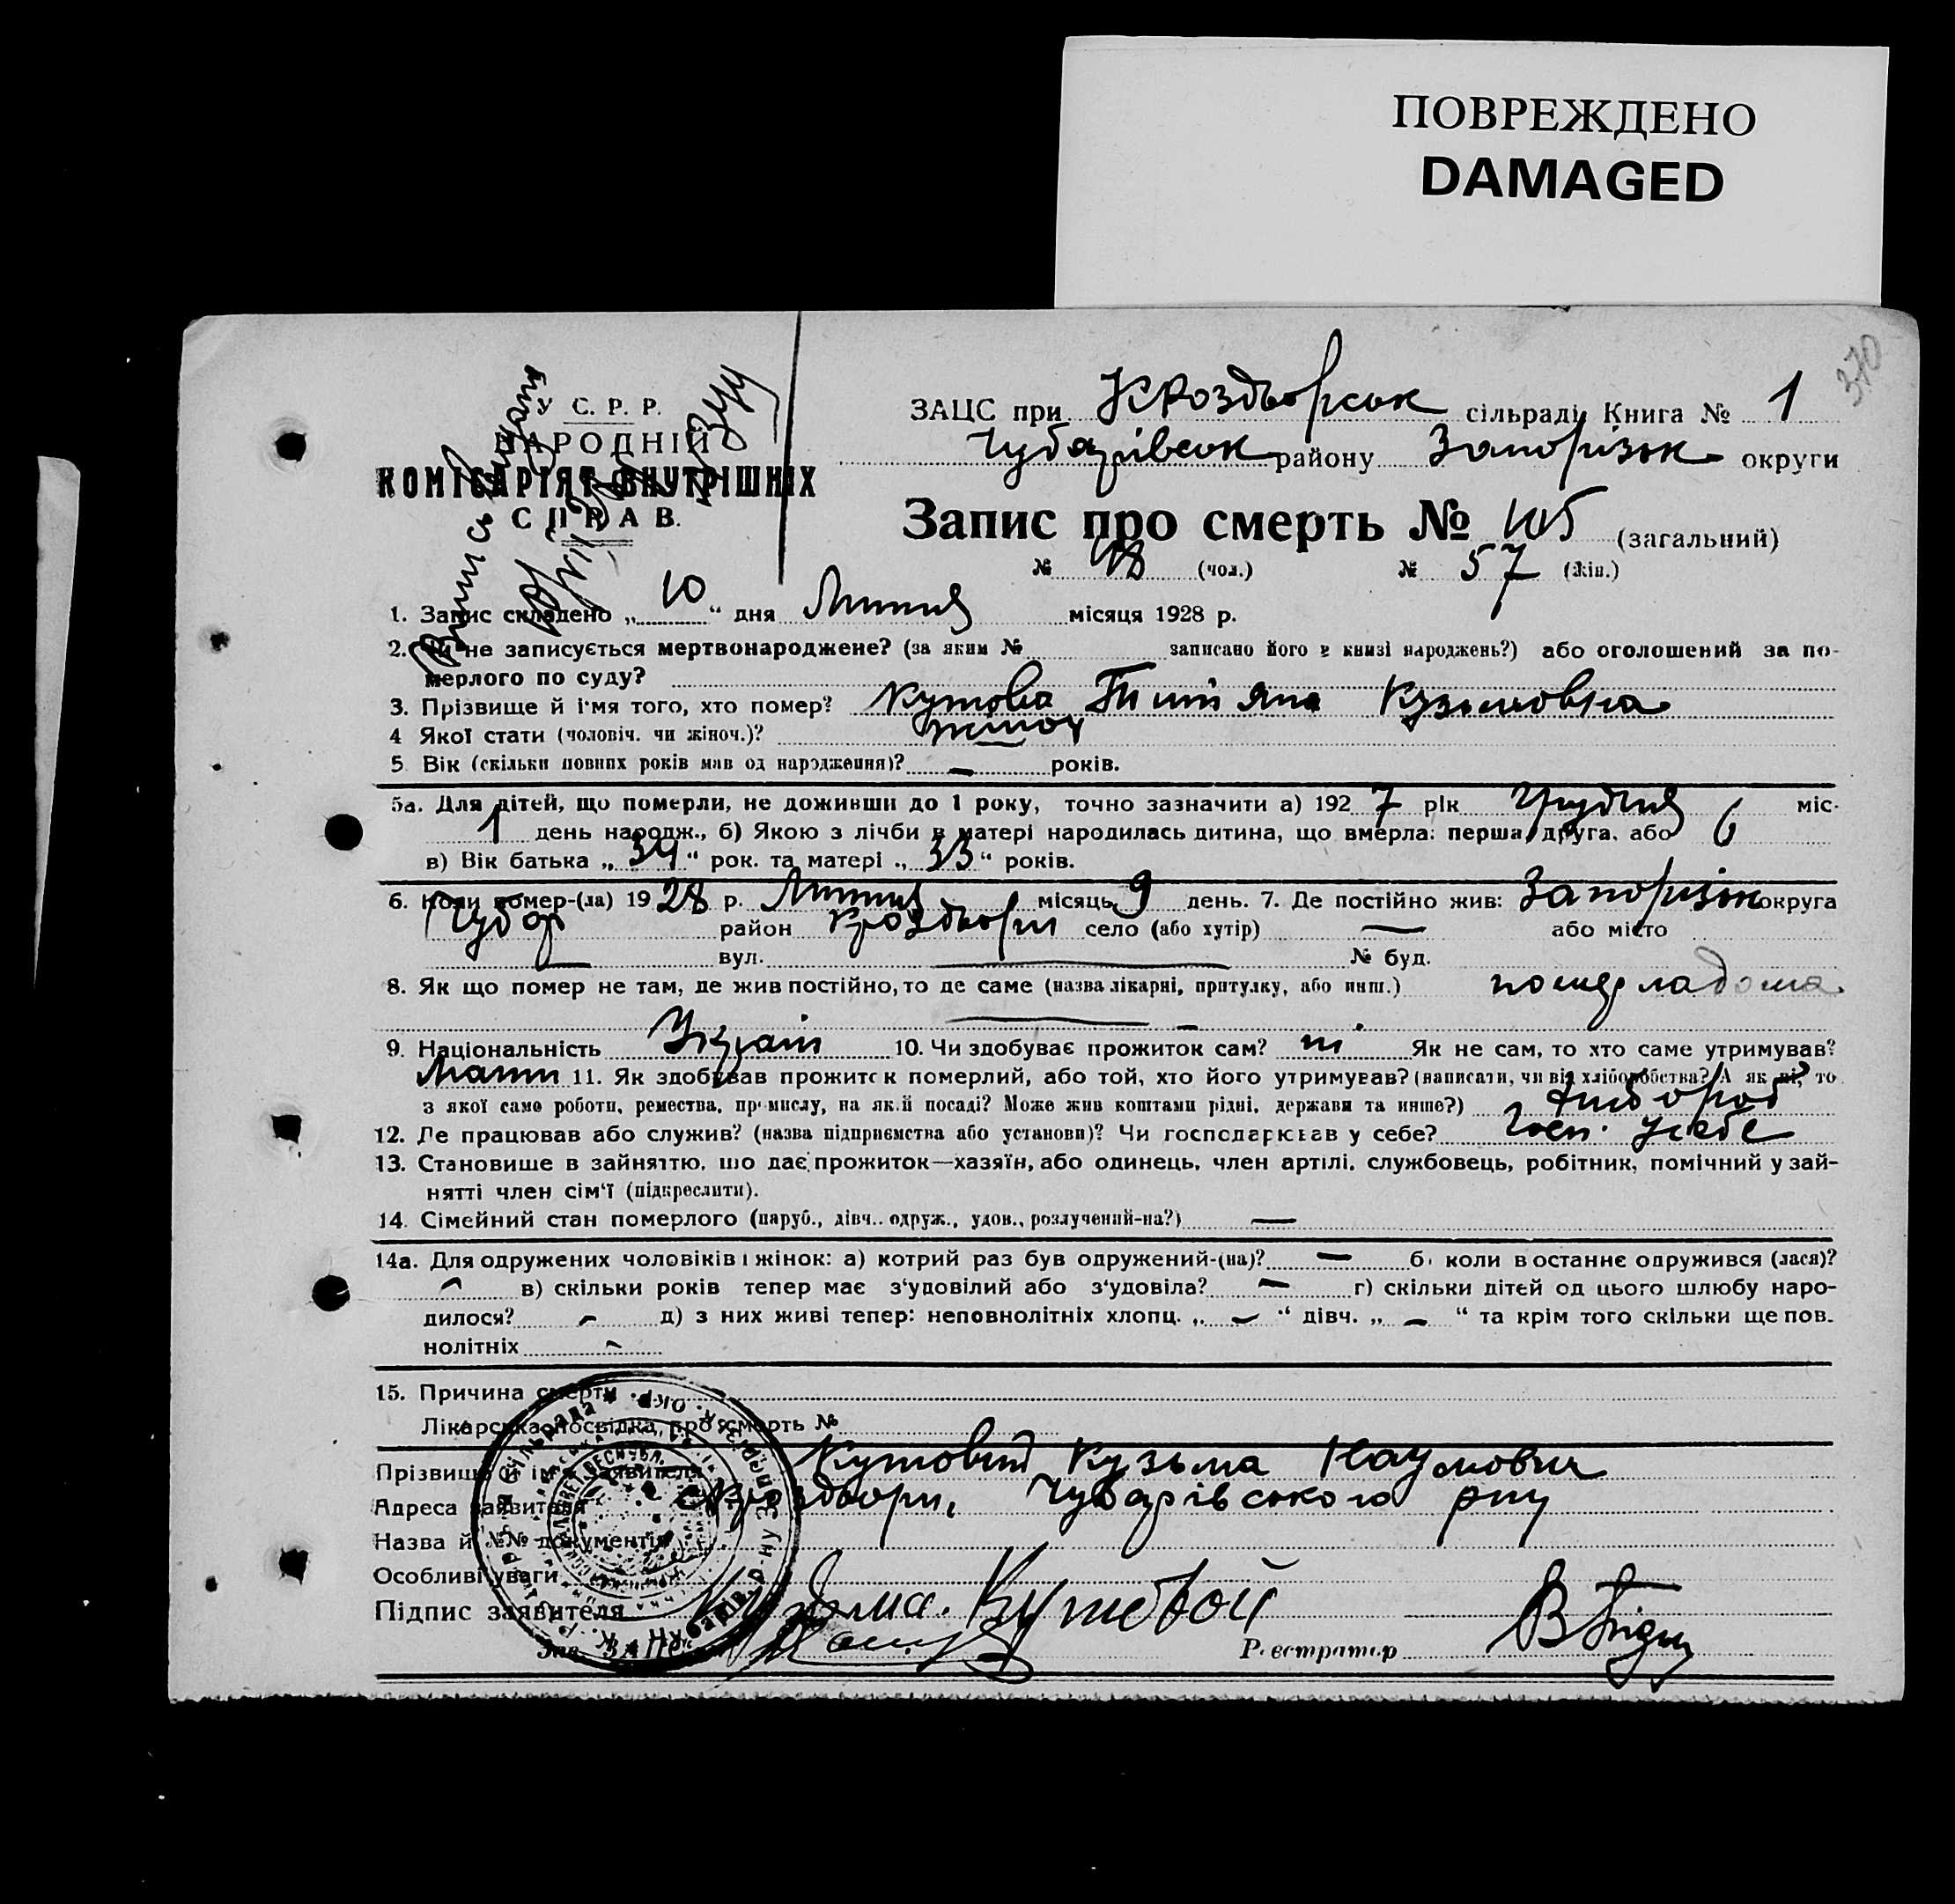 ПОВРЕЖДЕНО
DAMAGED
370
У С. Р. Р.
НАРОДНІЙ
КОМІСАРІЯТ ВНУТРІШНІХ
СПРАВ.
ЗАЦС при Кроздворськ сільраді Книга № 1
Чубарівськ району Запорізьк округи
Запис про смерть № 105 (загальний)
№ 48 (чол.) № 57 (жін.)
1. Запис складено „ 10 “ дня Липня місяця 1928 р.
2. Чи не записується мертвонароджене? (за яким № записано його в книзі народжень?) або оголошений за по-
мерлого по суду?
3. Прізвище й ім'я того, хто помер? Кутова Кузьмовна
4 Якої стати (чоловіч. чи жіноч.)? жіноч
5. Вік (скільки повних років мав од народження)? — років.
5а. Для дітей, що померли, не доживши до 1 року, точно зазначити а) 192 7 рік Грудня міс.
1 день народж., б) Якою з лічби в матері народилась дитина, що вмерла: перша, друга, або 6
в) Вік батька „ 34 “ рок. та матері „ 33 “ років.
6. Коли помер-(ла) 19 28 р. Липня місяць 9 день. 7. Де постійно жив: Запорізьк округа
Чубар район Кроздвори село (або хутір) — або місто
— вул. — № буд.
8. Як що помер не там, де жив постійно, то де саме (назва лікарні, притулку, або инш.) померла дома
— —
9. Національність Україн 10. Чи здобуває прожиток сам? ні Як не сам, то хто саме утримував?
Мати 11. Як здобував прожиток померлий, або той, хто його утримував? (написати, чи від хліборобства? А як ні, то
з якої саме роботи, ремества, промислу, на якій посаді? Може жив коштами рідні, держави та инше?) хлібороб
12. Де працював або служив? (назва підприємства або установи)? Чи господарював у себе? госп. у себе
13. Становище в зайняттю, що дає прожиток—хазяїн, або одинець, член артілі, службовець, робітник, помічний у зай-
нятті член сім'ї (підкреслити).
14. Сімейний стан померлого (паруб., дівч., одруж., удов., розлучений-на?) —
14а. Для одружених чоловіків і жінок: а) котрий раз був одружений-(на)? — б) коли в останнє одружився (лася)?
— в) скільки років тепер має з'удовілий або з'удовіла? — г) скільки дітей од цього шлюбу наро-
дилося? — д) з них живі тепер: неповнолітніх хлопц. „ — “ дівч. „ — “ та крім того скільки ще пов-
нолітніх —
15. Причина смерти
Лікарська посвідка про смерть №
Прізвище й ім'я заявителя Кутовий Кузьма Наумович
Адреса заявителя Кроздвори, Чубарівського рну
Назва й №№ документів
Особливі уваги
Підпис заявителя Кузьма. Кутовой
Зав. ЗАЦС Реєстратор